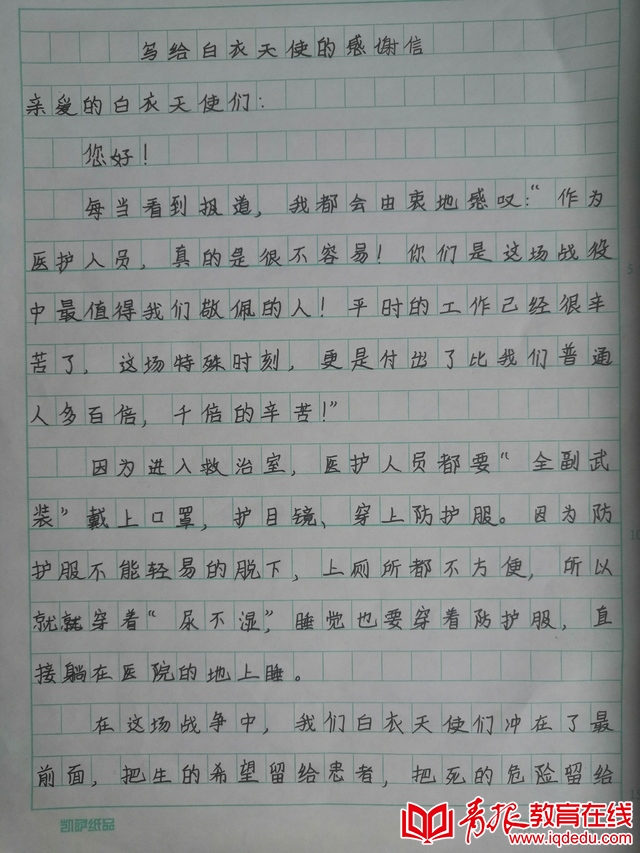 写给白衣天使的感谢信
亲爱的白衣天使们：
您好！
每当看到报道，我都会由衷地感叹：“作为
医护人员，真的是很不容易！你们是这场战役
中最值得我们敬佩的人！平时的工作已经很辛
苦了，这场特殊时刻，更是付出了比我们普通
人多百倍，千倍的辛苦！”
因为进入救治室，医护人员都要“全副武
装”戴上口罩，护目镜、穿上防护服。因为防
护服不能轻易的脱下，上厕所都不方便，所以
就就穿着“尿不湿”，睡觉也要穿着防护服，直
接躺在医院的地上睡。
在这场战争中，我们白衣天使们冲在了最
前面，把生的希望留给患者，把死的危险留给
凯萨纸品
5
10
15
青报教育在线
www.iqdedu.com